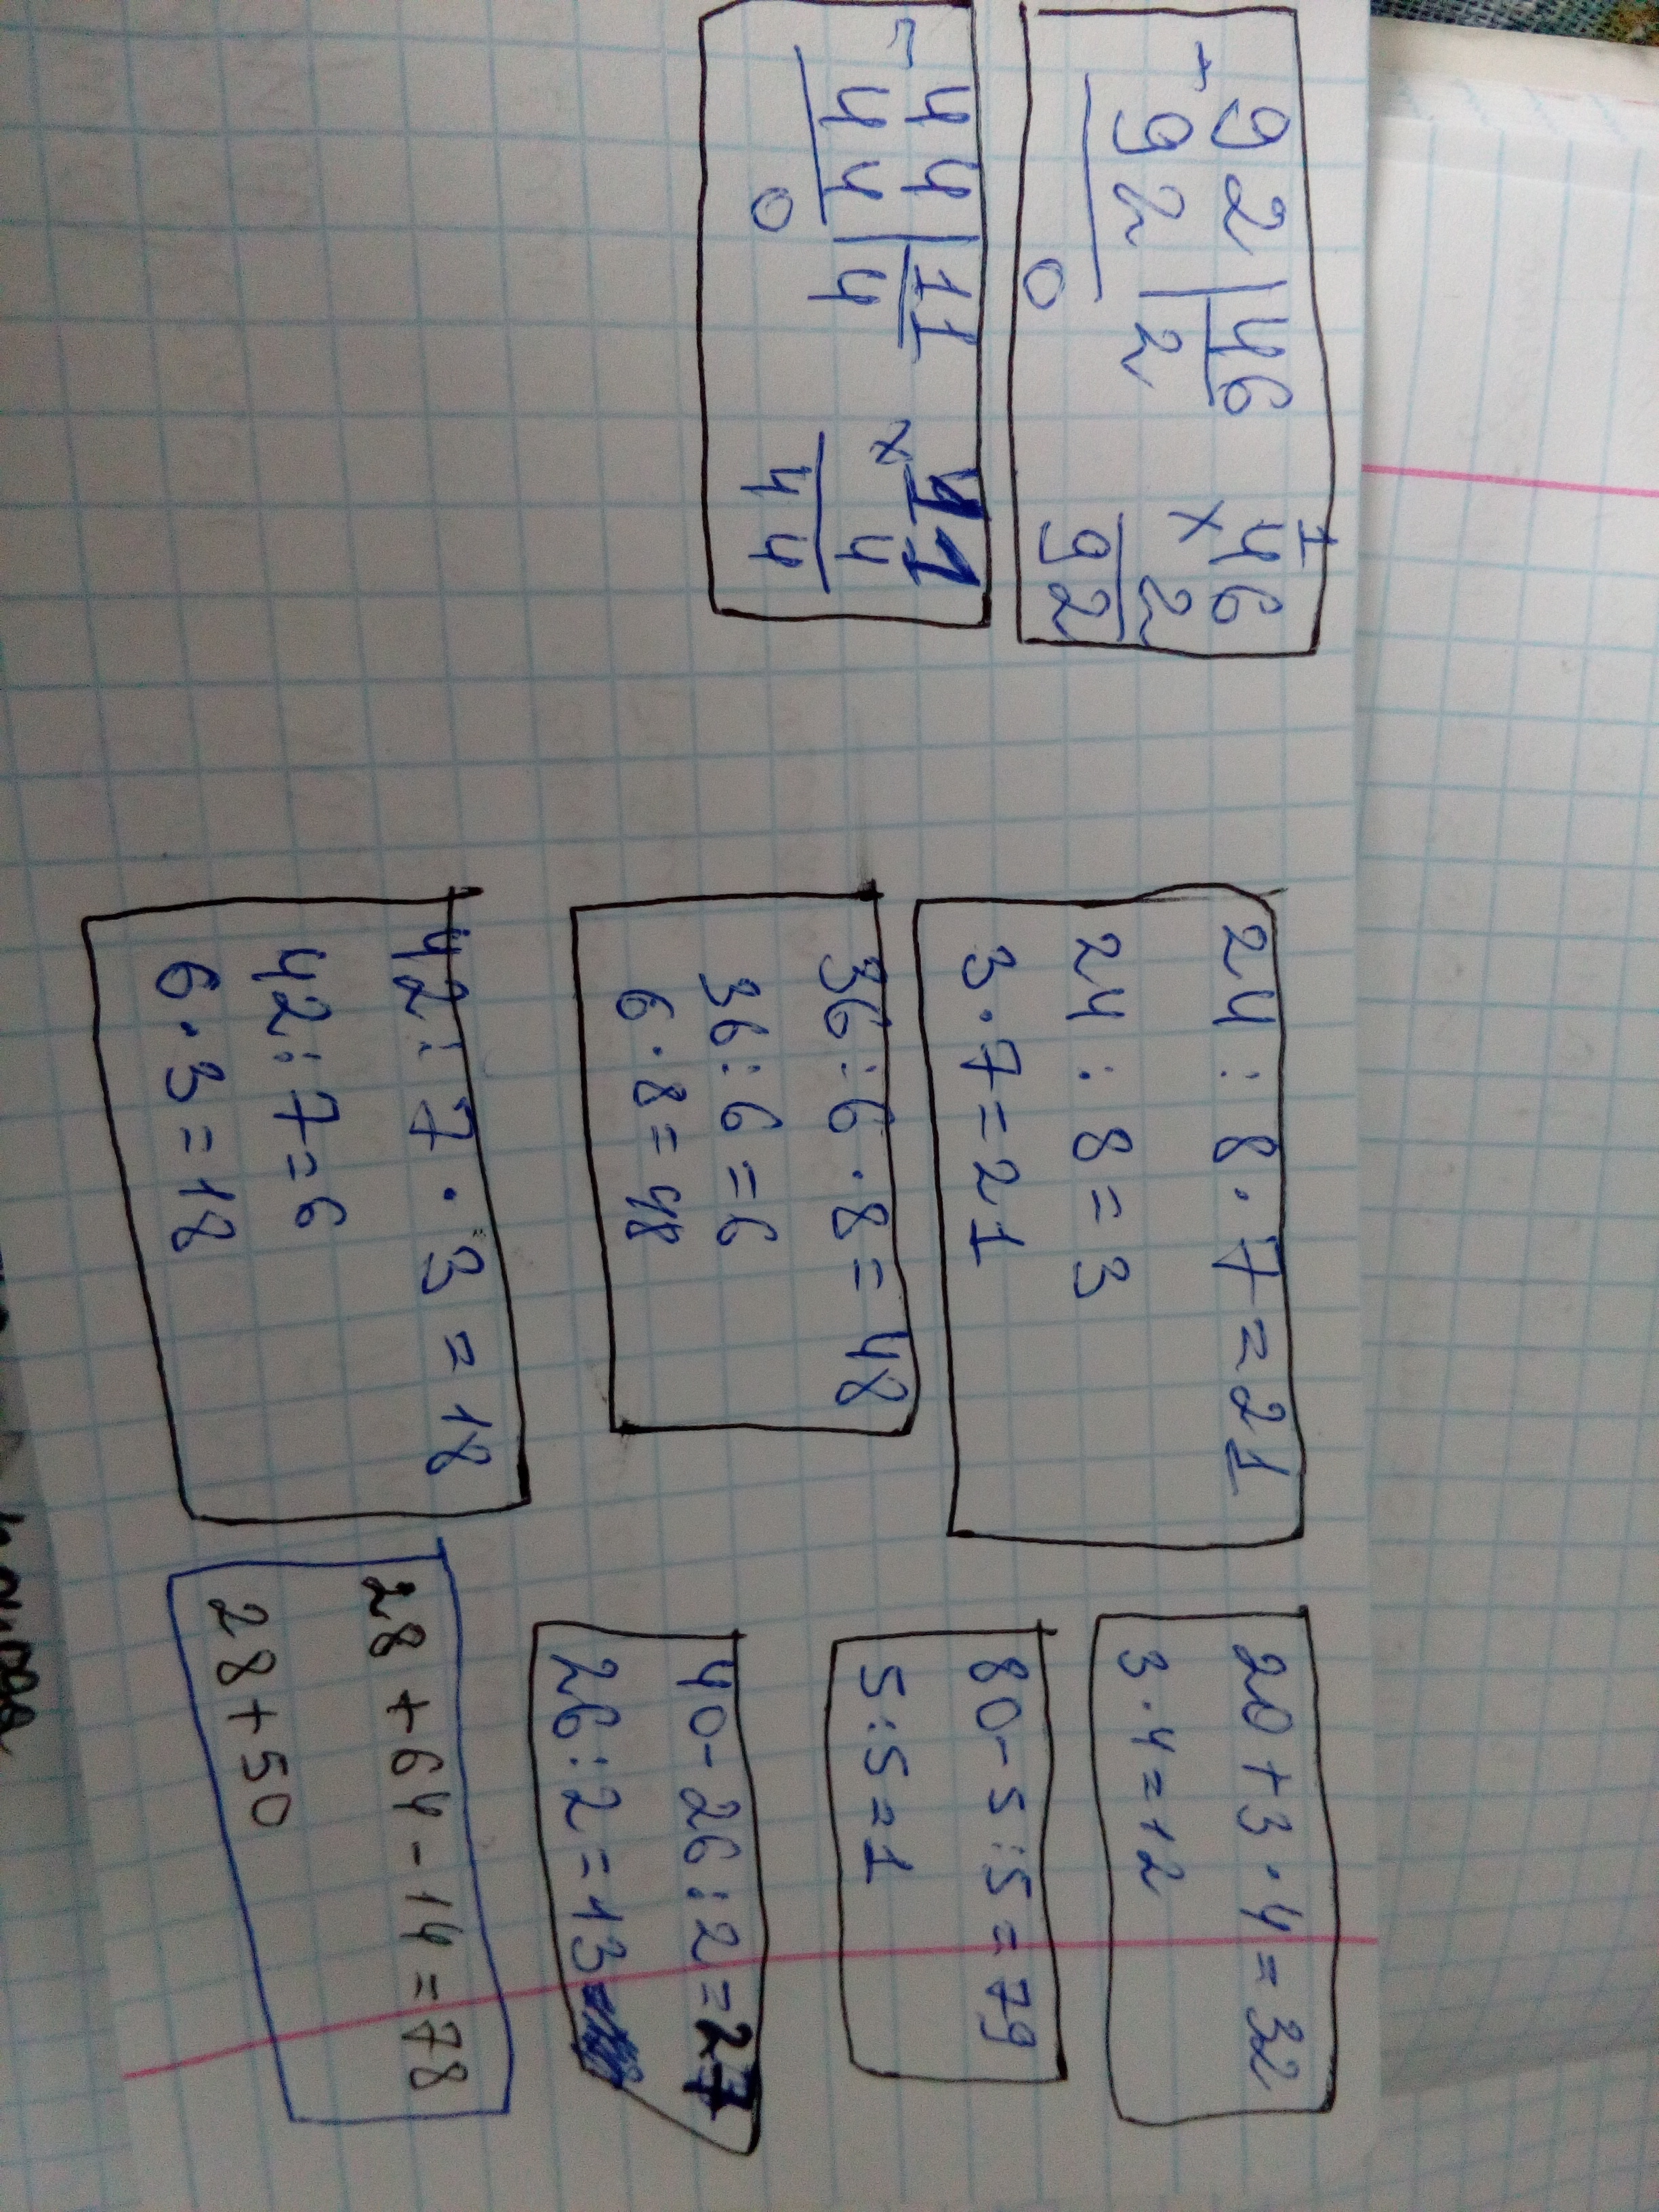 92 | 46
- 92 | 2
0
1
46
× 2
92
- 44 | 11
44 | 4
0
× 11
4
44
24 : 8 · 7 = 21
24 : 8 = 3
3 · 7 = 21
36 : 6 · 8 = 48
36 : 6 = 6
6 · 8 = 48
42 : 7 · 3 = 18
42 : 7 = 6
6 · 3 = 18
20 + 3 · 4 = 32
3 · 4 = 12
80 - 5 : 5 = 79
5 : 5 = 1
40 - 26 : 2 = 27
26 : 2 = 13
28 + 64 - 14 = 78
28 + 50